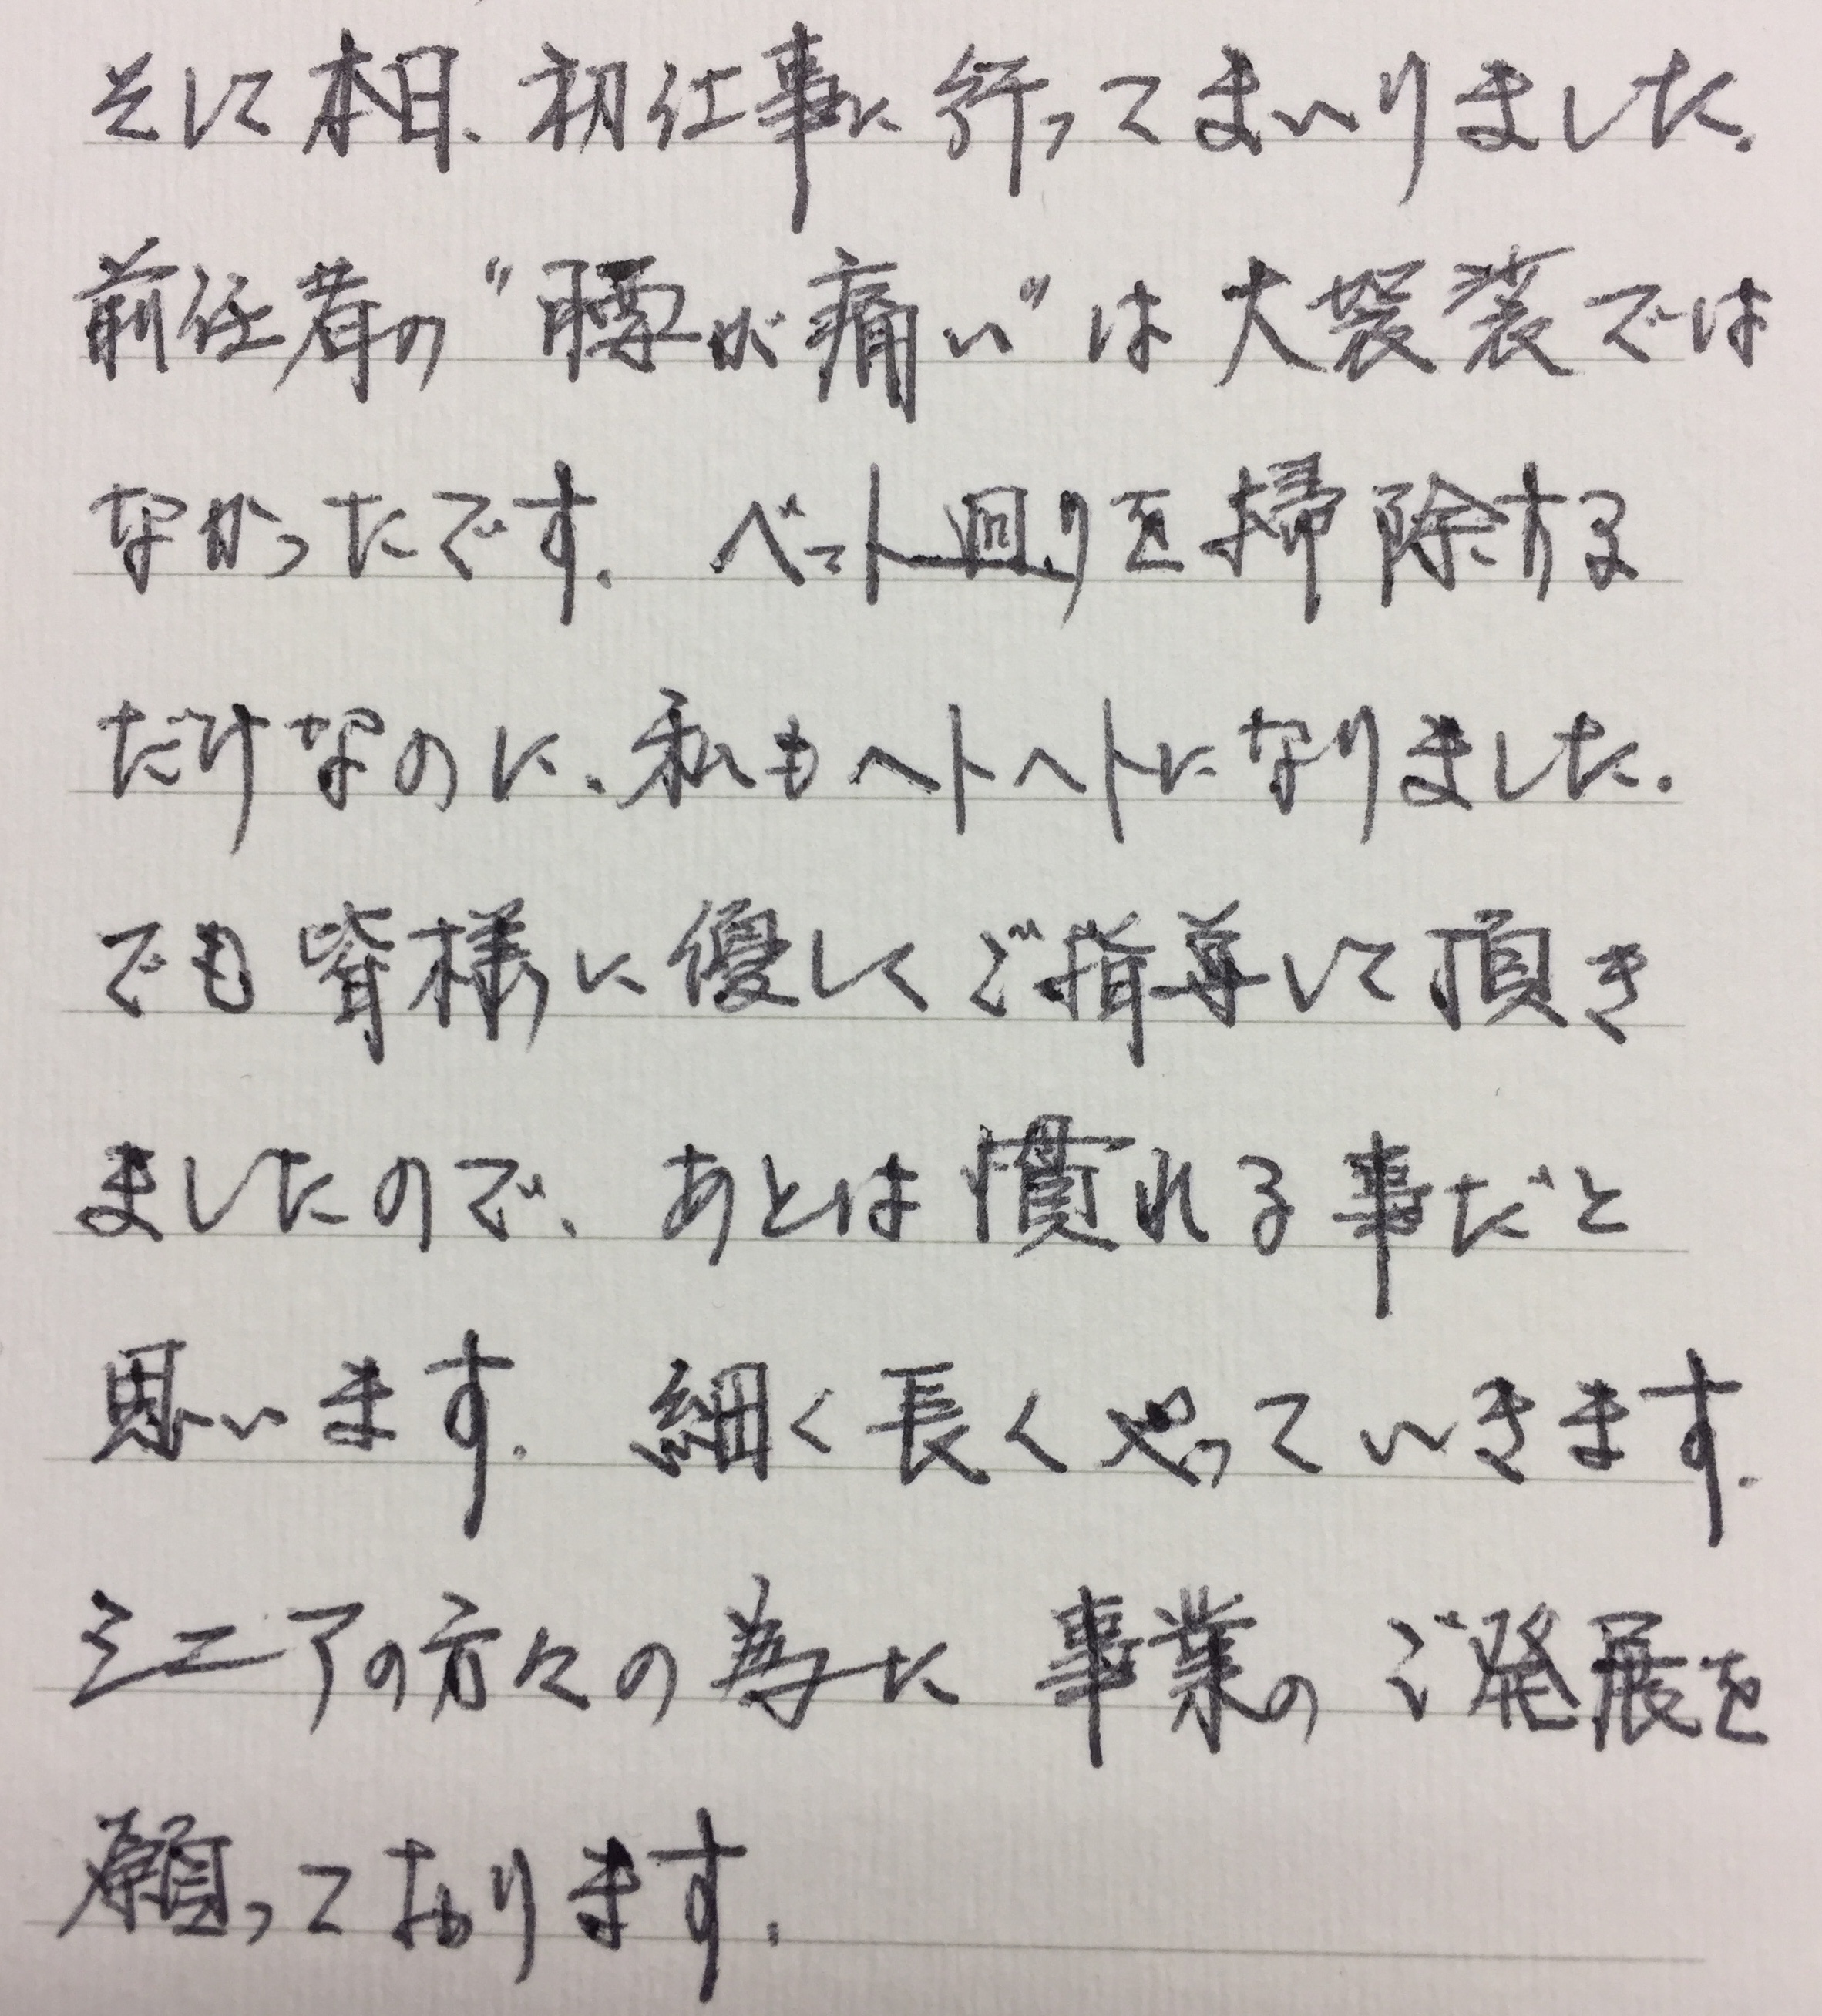 そして本日、初仕事に行ってまいりました。
前任者の〝腰が痛い〟は大袈裟では
なかったです。ベット廻りを掃除する
だけなのに、私もヘトヘトになりました。
でも皆様に優しくご指導して頂き
ましたので、あとは慣れる事だと
思います。細く長くやっていきます。
シニアの方々の為に事業のご発展を
願っております。